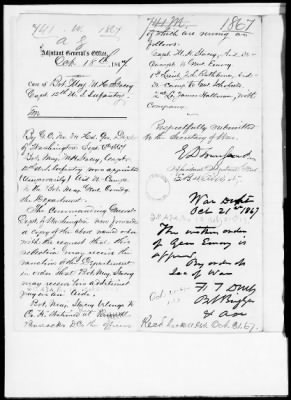 741 M. 1867
A G
Adjutant General's Office,
Oct. 18th, 1867
Case of Bvt. Maj. M. H. Stacey
Capt. 12th U.S. Infantry
By G.O. No. Hd. Qrs. Dept.
of Washington Sept. 1867
Bvt. Maj. M. H. Stacey, Capt.
12th U.S. Infantry was appointed
temporarily Aid-de-Camp
to the Bvt. Maj. Genl. Comdg.
the Department.
The Commanding General
Dept. of Washington now forwards
a copy of the above named order
with the request that this
selection may receive the
sanction of the Department
in order that Bvt. Maj. Stacey
may receive the additional
pay as an Aide.
Bvt. Maj. Stacey belongs to
Co. H. stationed at Russell
Barracks D.C. the officers
744 M. 1867
of which are serving as
follows:
Capt. M. H. Stacey, A. D.
Camp to Genl. Emory
1st Lieut. J. L. Rathbone, Aid-
de-Camp to Genl. Schofield.
2nd Lt. James Halloran, with
Company.
Respectfully submitted
to the Secretary of War.
E. D. Townsend
Assistant Adjutant Genl.
War Dept
Oct 21st 1867
The within order
of Genl Emory is
approved
By order of
Sec of War
F. T. Dent
Bt Brig Gen
& ADC
Recd back A.G.O. Oct. 21. 67.